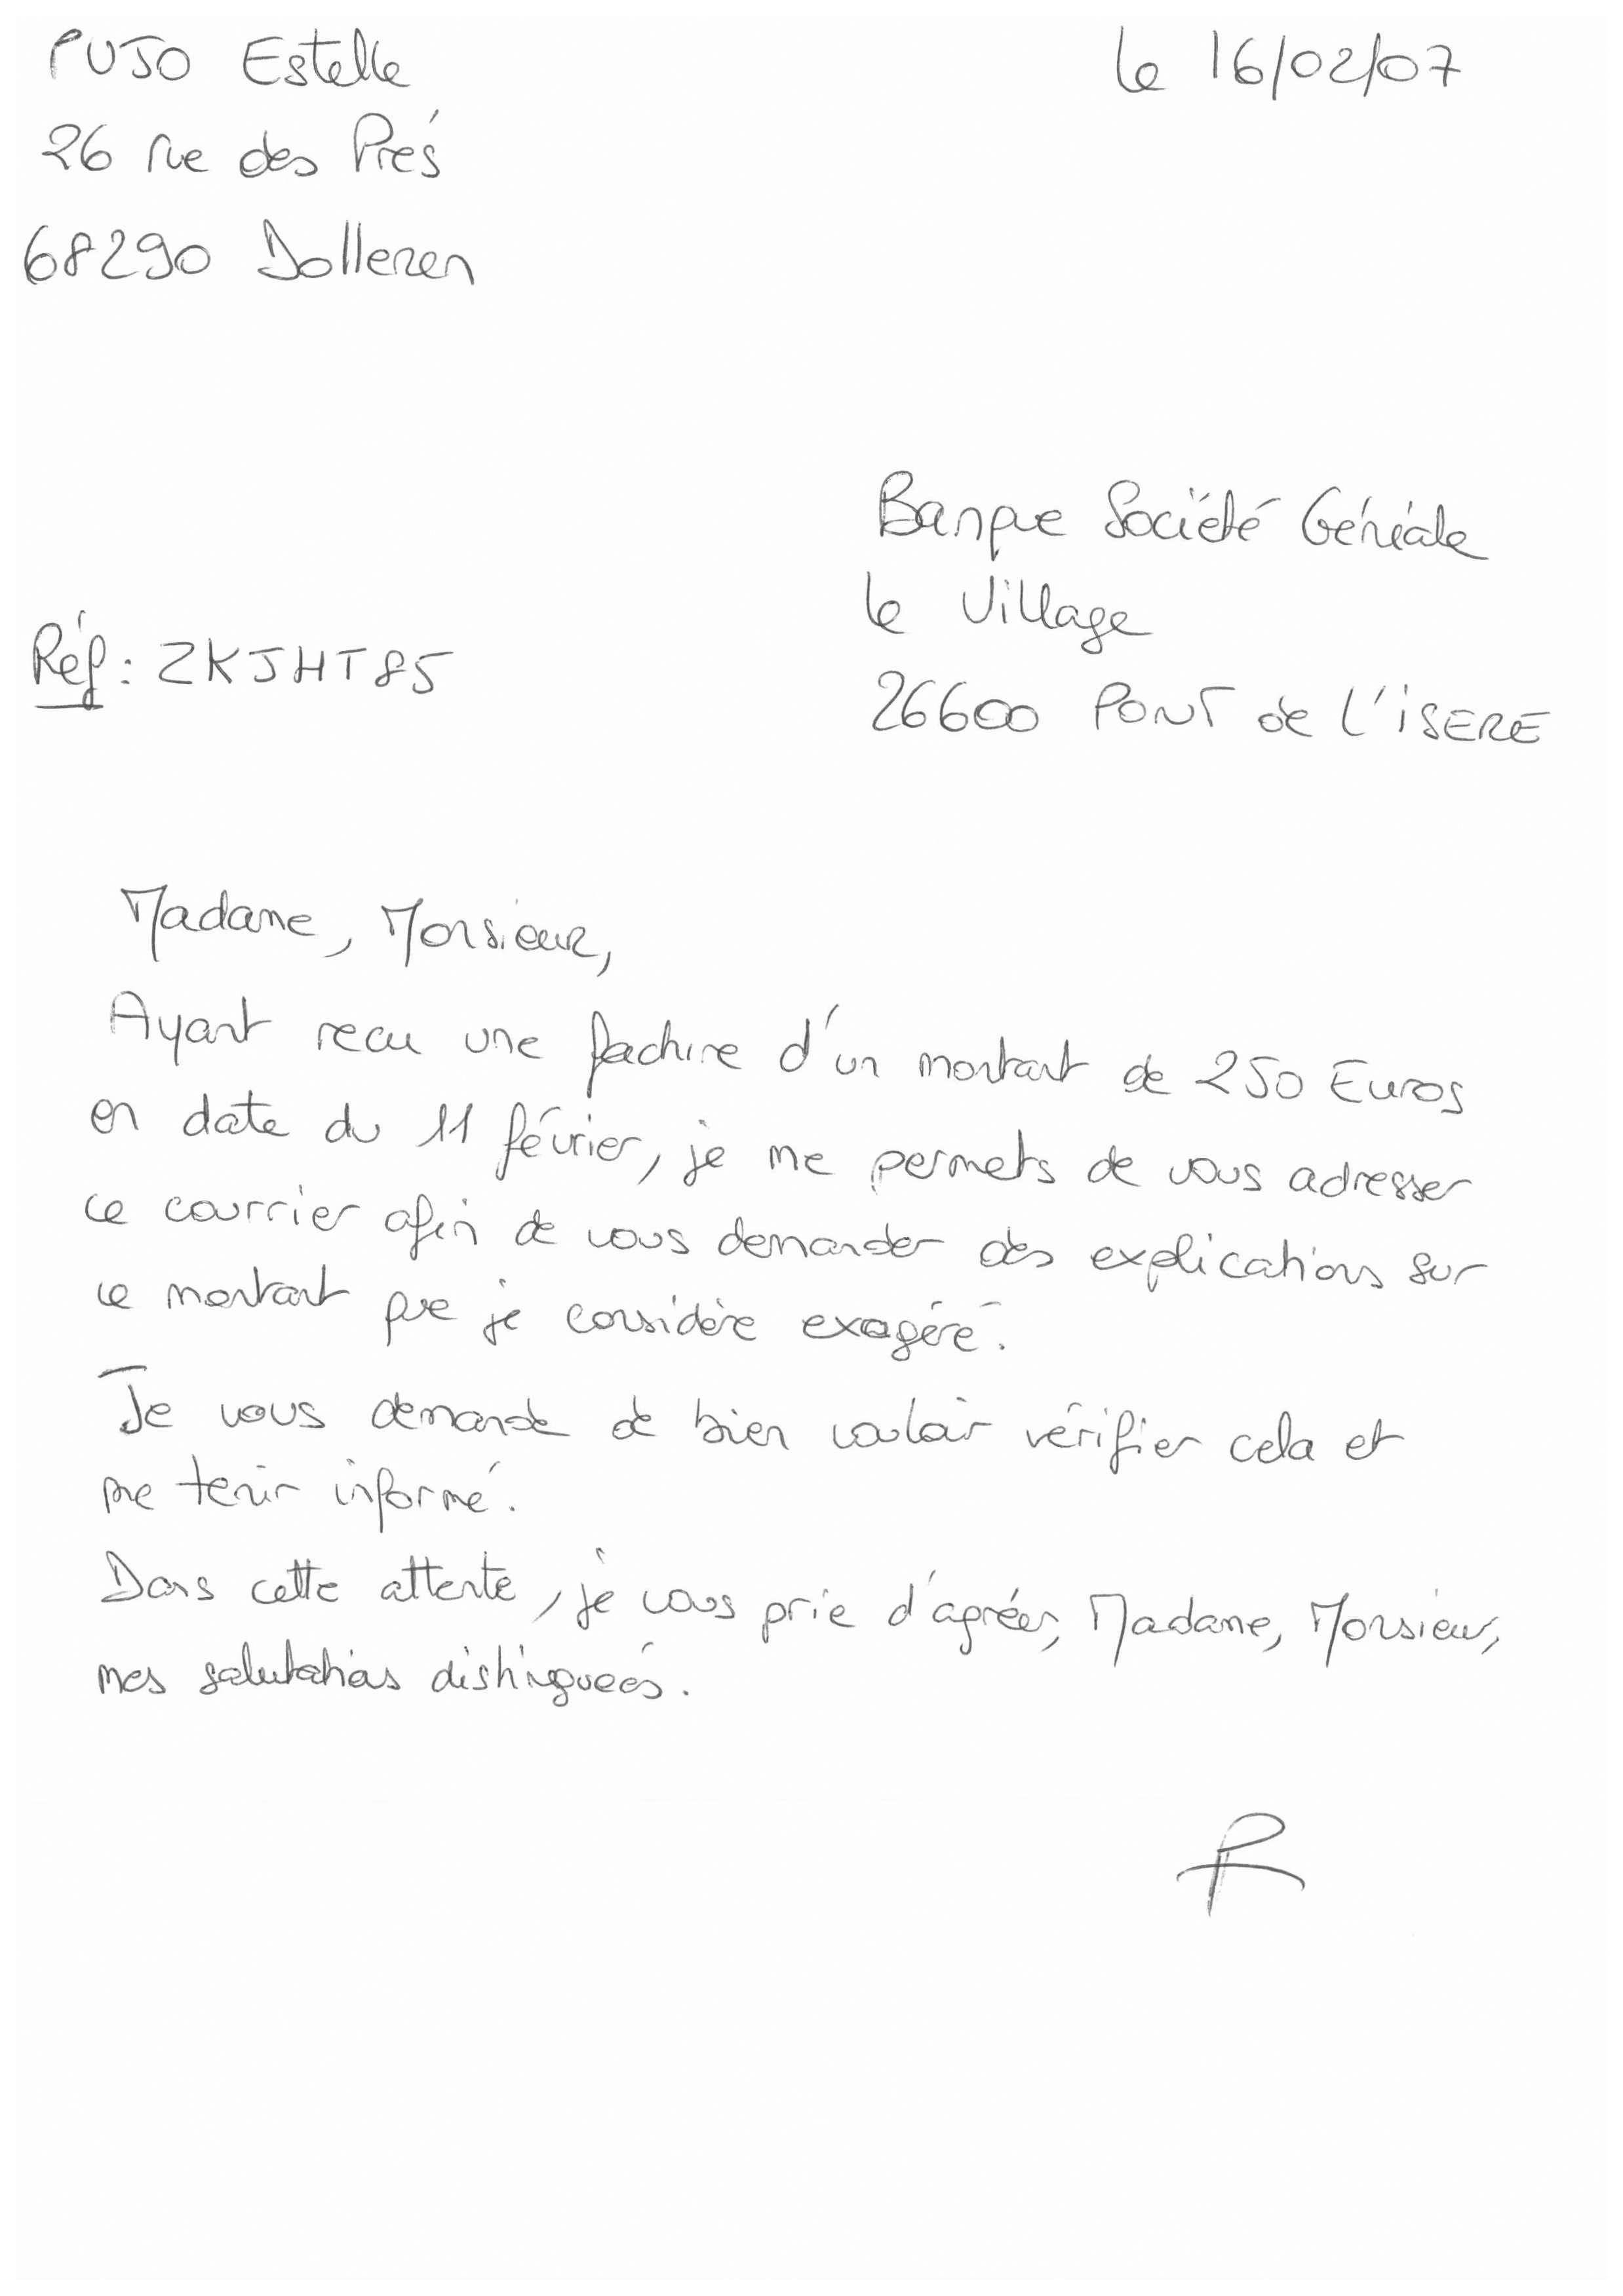 PUJO Estelle
le 16/02/07
26 rue des Prés
68290 Dolleren
Banque Société Générale
le Village
Réf : ZKJHT85
26600 PONT de L'iSERE
Madame, Monsieur,
Ayant recu une facture d'un montant de 250 Euros
en date du 11 février, je me permets de vous adresser
ce courrier afin de vous demander des explications sur
ce montant que je considère exagéré.
Je vous demande de bien vouloir vérifier cela et
me tenir informé.
Dans cette attente, je vous prie d'agréer, Madame, Monsieur,
mes salutations distinguées.